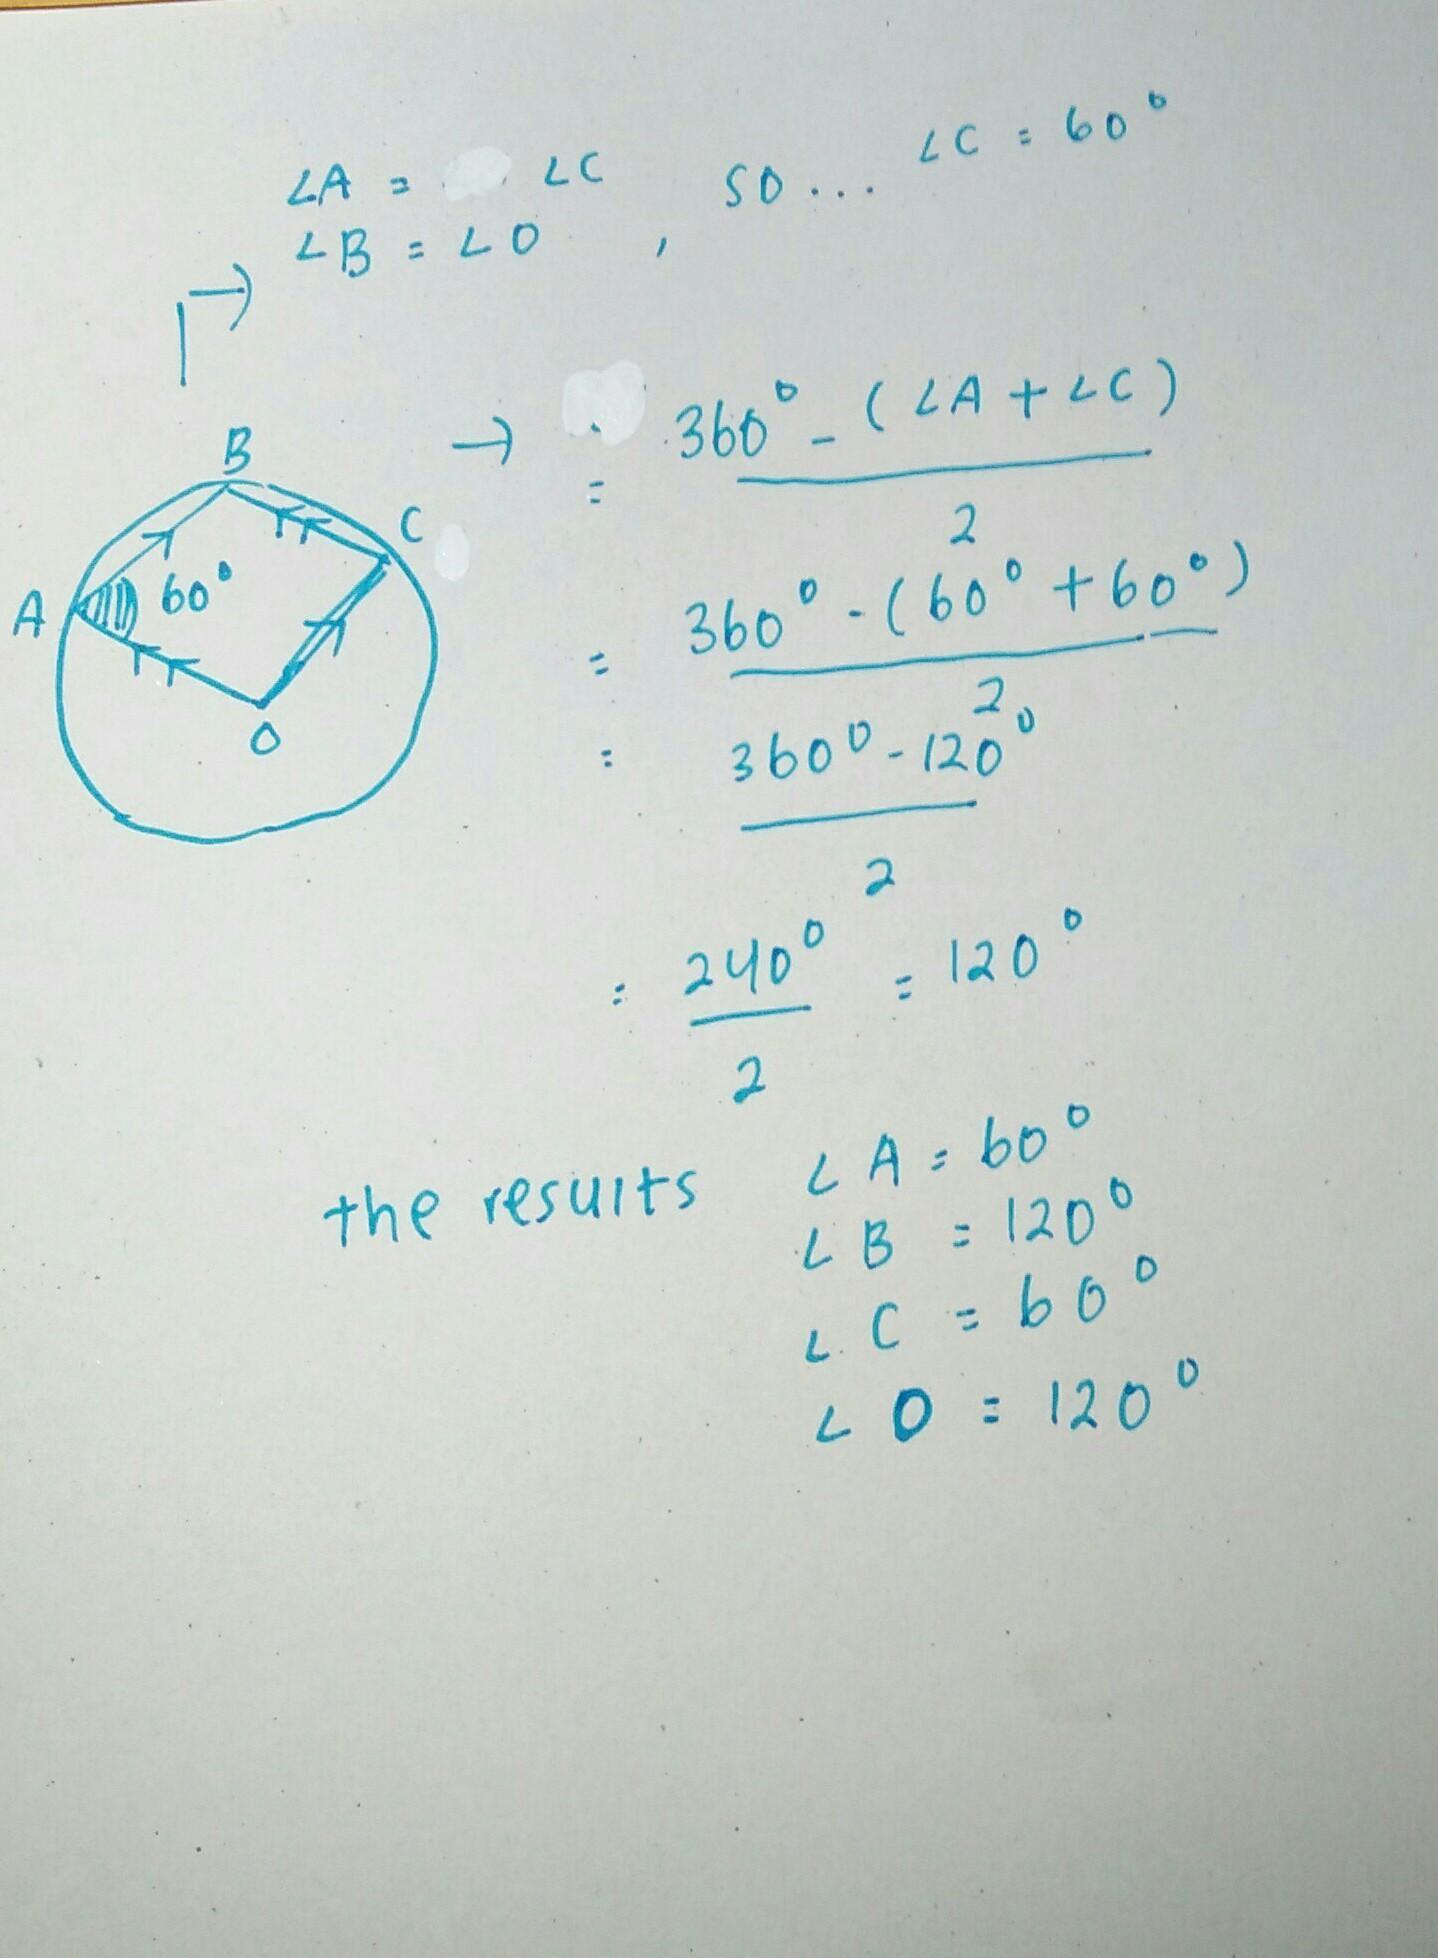 ∠A = ∠C , so... ∠C = 60°
∠B = ∠O
→ = 360° - (∠A + ∠C)
2
= 360° - (60° + 60°)
2
= 360° - 120°
2
= 240° = 120°
2
B
C
A 60°
O
the results ∠A = 60°
∠B = 120°
∠C = 60°
∠O = 120°